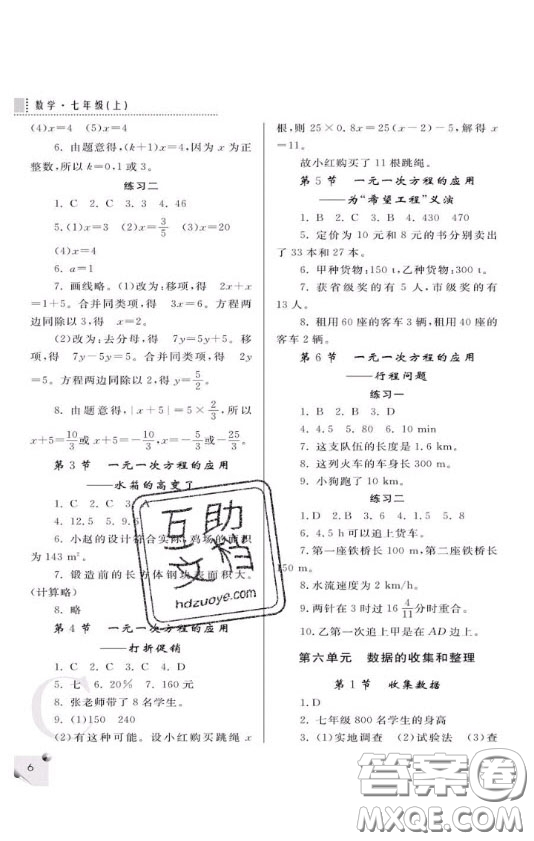 数学·七年级(上)
(4)x=4 (5)x=4
6. 由题意得,(k+1)x=4,因为 x 为正
整数,所以 k=0,1或3。
练习二
1. C 2. C 3. 3 4. 46
5. (1)x=3 (2)x=3/5 (3)x=20
(4)x=4
6. a=1
7. 画线略。(1)改为:移项,得 2x+x
=1+5。合并同类项,得 3x=6。方程两
边同除以3,得 x=2。
(2)改为:去分母,得 7y=5y+5。移
项,得 7y-5y=5。合并同类项,得 2y
=5。方程两边同除以2,得 y=5/2。
8. 由题意得,|x+5|=5×2/3,所以
x+5=10/3或x+5=-10/3,x=-5/3或-25/3
第3节 一元一次方程的应用
——水箱的高变了
1. C 2. C 3.
4. 12.5 5. 9.
6. 小赵的设计符合实际,鸡场的面积
为 143 m²。
7. 锻造前的长方体钢块表面积大。
(计算略)
8. 略
第4节 一元一次方程的应用
——打折促销
1. C 2. C 3. C 4. D
5. 七 6. 20% 7. 160元
8. 张老师带了8名学生。
9. (1)150 240
(2)有这种可能。设小红购买跳绳 x
6
根,则 25×0.8x=25(x-2)-5,解得 x
=11。
故小红购买了11根跳绳。
第5节 一元一次方程的应用
——为“希望工程”义演
1. B 2. C 3. B 4. 430 470
5. 定价为10元和8元的书分别卖出
了33本和27本。
6. 甲种货物:150 t,乙种货物:300 t。
7. 获省级奖的有5人,市级奖的有
13人。
8. 租用60座的客车3辆,租用40座的
客车2辆。
第6节 一元一次方程的应用
——行程问题
练习一
1. B 2. B 3. D
4. D 5. 4 6. 8,10 min
7. 这支队伍的长度是1.6 km。
8. 这列火车的车身长300 m。
9. 小狗跑了10 km。
练习二
1. C 2. A 3. D 4. 6 5. 4
6. 4.5 h可以追上货车。
7. 第一座铁桥长100 m,第二座铁桥长
150 m。
8. 水流速度为2 km/h。
9. 两针在3时过16 4/11分时重合。
10. 乙第一次追上甲是在AD边上。
第六单元 数据的收集和整理
第1节 收集数据
1. D
2. 七年级800名学生的身高
3. (1)实地调查 (2)试验法 (3)查
互助
文档
hdzuoye.com
答案圈
MXQE.COM